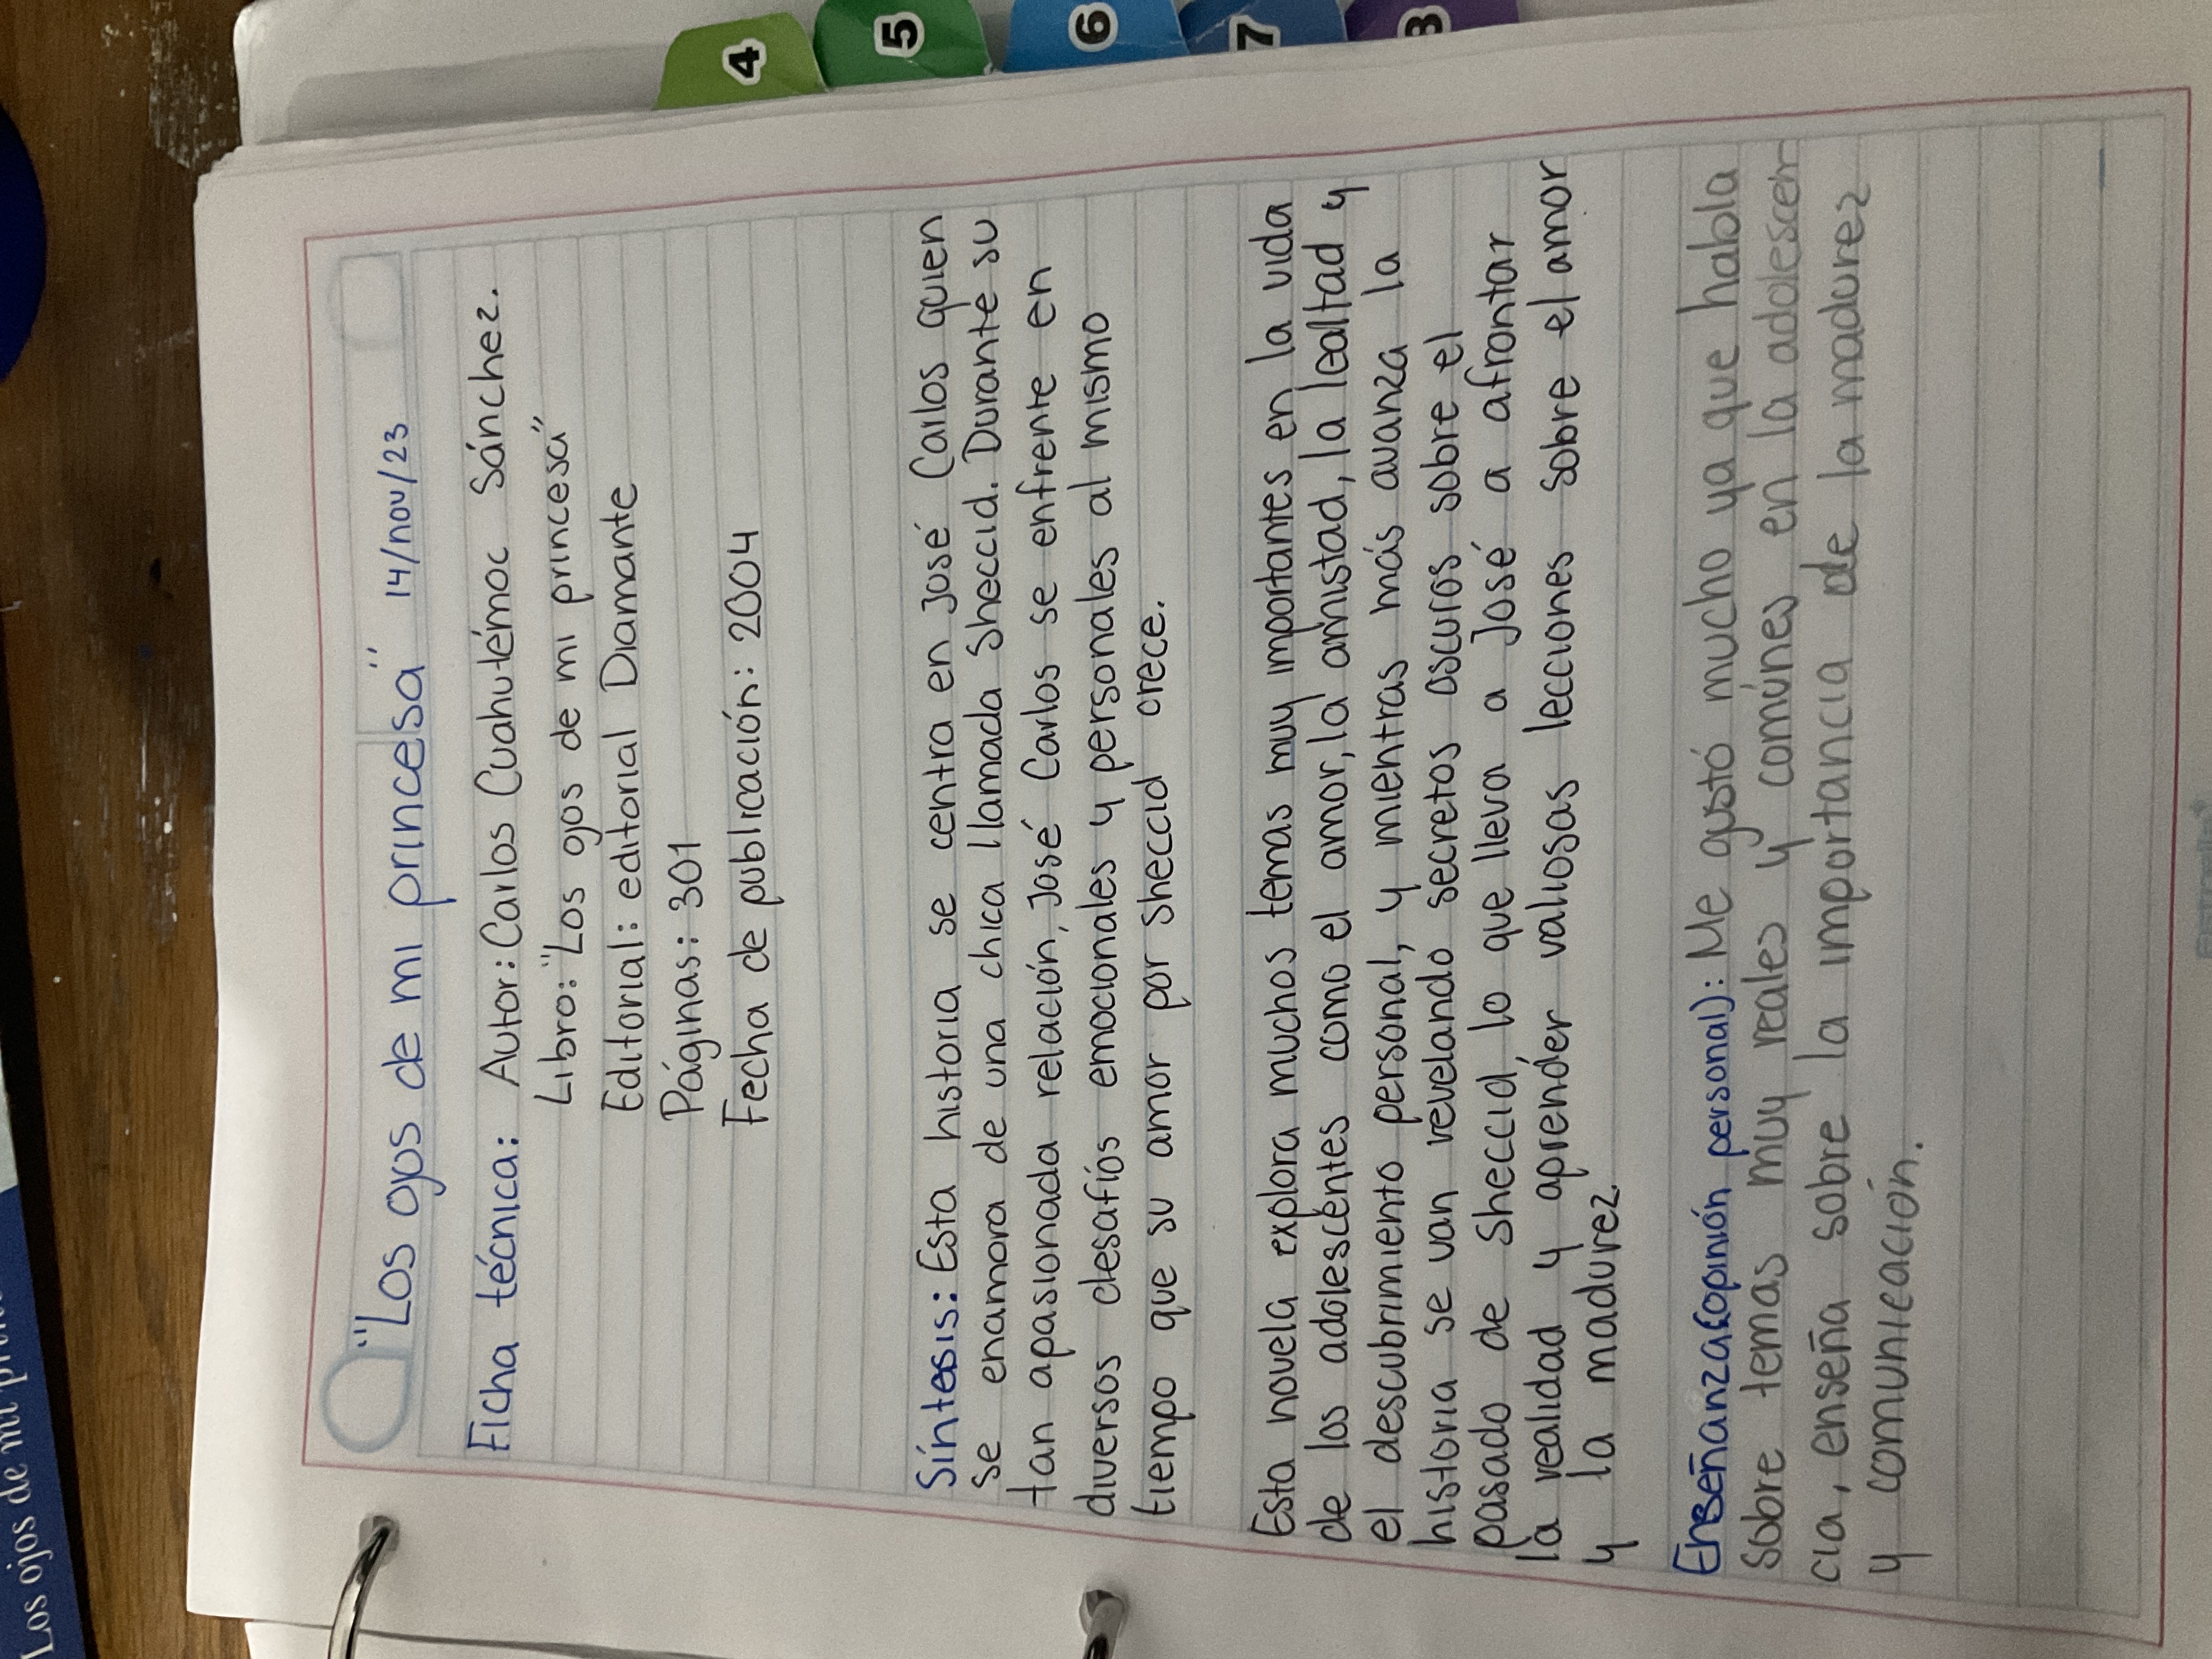 "Los ojos de mi princesa" 14/nov/23
Ficha técnica: Autor: Carlos Cuahutémoc Sánchez.
Libro: "Los ojos de mi princesa"
Editorial: editorial Diamante
Páginas: 301
Fecha de publicación: 2004
Síntesis: Esta historia se centra en José Carlos quien
se enamora de una chica llamada Sheccid. Durante su
tan apasionada relación, José Carlos se enfrente en
diversos desafíos emocionales y personales al mismo
tiempo que su amor por Sheccid crece.
Esta novela explora muchos temas muy importantes en la vida
de los adolescentes como el amor, la amistad, la lealtad y
el descubrimiento personal, y mientras más avanza la
historia se van revelando secretos oscuros sobre el
pasado de Sheccid, lo que lleva a José a afrontar
la realidad y aprender valiosas lecciones sobre el amor
y la madurez.
Enseñanza(opinión personal): Me gustó mucho ya que habla
sobre temas muy reales y comúnes en la adolescen
cia, enseña sobre la importancia de la madurez
y comunicación.
Los ojos de mi
4
5
6
7
8